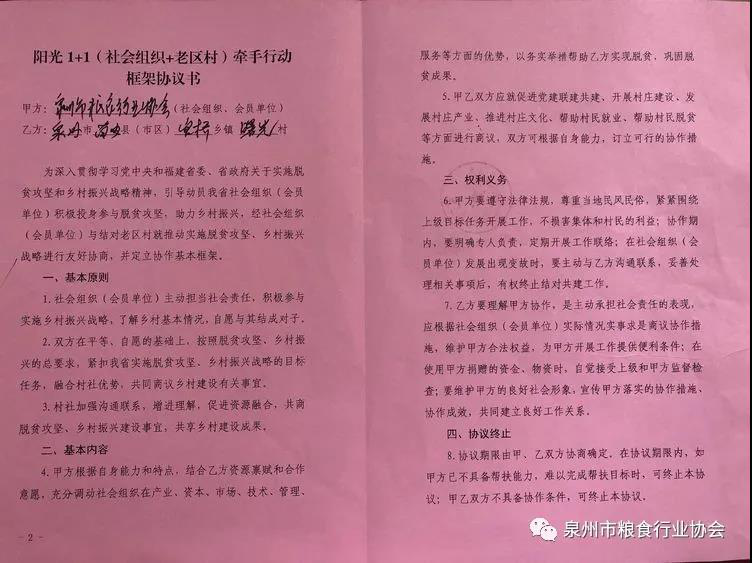 阳光1+1（社会组织+老区村）牵手行动
框架协议书
甲方：泉州市粮食行业协会（社会组织、会员单位）
乙方：泉州市南安县（市区）乡镇 曙光村
为深入贯彻学习党中央和福建省委、省政府关于实施脱
贫攻坚和乡村振兴战略精神，引导动员我省社会组织（会员
单位）积极投身参与脱贫攻坚，助力乡村振兴，经社会组织
（会员单位）与结对老区村就推动实施脱贫攻坚、乡村振兴
战略进行友好协商，并定立协作基本框架。
一、基本原则
1.社会组织（会员单位）主动担当社会责任，积极参与
实施乡村振兴战略，了解乡村基本情况，自愿与其结成对子。
2.双方在平等、自愿的基础上，按照脱贫攻坚、乡村振
兴的总要求，紧扣我省实施脱贫攻坚、乡村振兴战略的目标
任务，融合村社优势，共同商议乡村建设有关事宜。
3.村社加强沟通联系，增进理解，促进资源融合，共商
脱贫攻坚、乡村振兴建设事宜，共享乡村建设成果。
二、基本内容
4.甲方根据自身能力和特点，结合乙方资源禀赋和合作
意愿，充分调动社会组织在产业、资本、市场、技术、管理、
- 2 -
服务等方面的优势，以务实举措帮助乙方实现脱贫，巩固脱
贫成果。
5.甲乙双方应就促进党建联建共建、开展村庄建设、发
展村庄产业、推进村庄文化、帮助村民就业、帮助村民脱贫
等方面进行商议，双方可根据自身能力，订立可行的协作措
施。
三、权利义务
6.甲方要遵守法律法规，尊重当地民风民俗，紧紧围绕
上级目标任务开展工作，不损害集体和村民的利益；协作期
内，要明确专人负责，定期开展工作联络；在社会组织（会
员单位）发展出现变故时，要主动与乙方沟通联系，妥善处
理相关事项后，有权终止结对共建工作。
7.乙方要理解甲方协作，是主动承担社会责任的表现，
应根据社会组织（会员单位）实际情况实事求是商议协作措
施，维护甲方合法权益，为甲方开展工作提供便利条件；在
使用甲方捐赠的资金、物资时，自觉接受上级和甲方监督检
查；要维护甲方的良好社会形象，宣传甲方落实的协作措施、
协作成效，共同建立良好工作关系。
四、协议终止
8.协议期限由甲、乙双方协商确定。在协议期限内，如
甲方已不具备帮扶能力，难以完成帮扶目标时，可终止本协
议；甲乙双方不具备协作条件，可终止本协议。
泉州市粮食行业协会